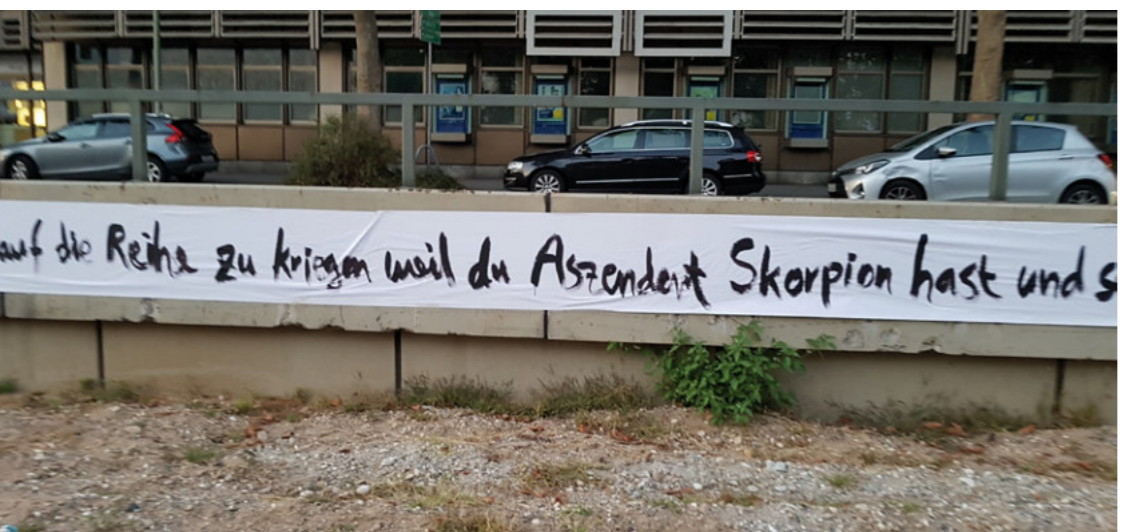 auf die Reihe zu kriegen weil du Aszendent Skorpion hast und s